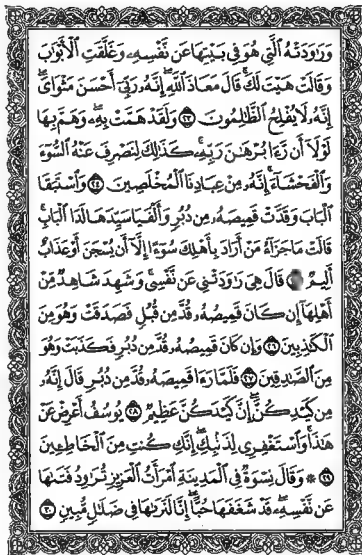 وَرَٰوَدَتْهُ ٱلَّتِى هُوَ فِى بَيْتِهَا عَن نَّفْسِهِۦ وَغَلَّقَتِ ٱلْأَبْوَٰبَ
وَقَالَتْ هَيْتَ لَكَ ۚ قَالَ مَعَاذَ ٱللَّهِ ۖ إِنَّهُۥ رَبِّىٓ أَحْسَنَ مَثْوَاىَ ۖ
إِنَّهُۥ لَا يُفْلِحُ ٱلظَّٰلِمُونَ ٢٣ وَلَقَدْ هَمَّتْ بِهِۦ ۖ وَهَمَّ بِهَا
لَوْلَآ أَن رَّءَا بُرْهَٰنَ رَبِّهِۦ ۚ كَذَٰلِكَ لِنَصْرِفَ عَنْهُ ٱلسُّوٓءَ
وَٱلْفَحْشَآءَ ۚ إِنَّهُۥ مِنْ عِبَادِنَا ٱلْمُخْلَصِينَ ٢٤ وَٱسْتَبَقَا
ٱلْبَابَ وَقَدَّتْ قَمِيصَهُۥ مِن دُبُرٍ وَأَلْفَيَا سَيِّدَهَا لَدَا ٱلْبَابِ ۚ
قَالَتْ مَا جَزَآءُ مَنْ أَرَادَ بِأَهْلِكَ سُوٓءًا إِلَّآ أَن يُسْجَنَ أَوْ عَذَابٌ
أَلِيمٌ قَالَ هِىَ رَٰوَدَتْنِى عَن نَّفْسِى ۚ وَشَهِدَ شَاهِدٌ مِّنْ
أَهْلِهَآ إِن كَانَ قَمِيصُهُۥ قُدَّ مِن قُبُلٍ فَصَدَقَتْ وَهُوَ مِنَ
ٱلْكَٰذِبِينَ ٢٦ وَإِن كَانَ قَمِيصُهُۥ قُدَّ مِن دُبُرٍ فَكَذَبَتْ وَهُوَ
مِنَ ٱلصَّٰدِقِينَ ٢٧ فَلَمَّا رَءَا قَمِيصَهُۥ قُدَّ مِن دُبُرٍ قَالَ إِنَّهُۥ
مِن كَيْدِكُنَّ ۖ إِنَّ كَيْدَكُنَّ عَظِيمٌ ٢٨ يُوسُفُ أَعْرِضْ عَنْ
هَٰذَا ۚ وَٱسْتَغْفِرِى لِذَنۢبِكِ ۖ إِنَّكِ كُنتِ مِنَ ٱلْخَاطِـِٔينَ
٢٩ ۞ وَقَالَ نِسْوَةٌ فِى ٱلْمَدِينَةِ ٱمْرَأَتُ ٱلْعَزِيزِ تُرَٰوِدُ فَتَىٰهَا
عَن نَّفْسِهِۦ ۖ قَدْ شَغَفَهَا حُبًّا ۖ إِنَّا لَنَرَىٰهَا فِى ضَلَٰلٍ مُّبِينٍ ٣٠